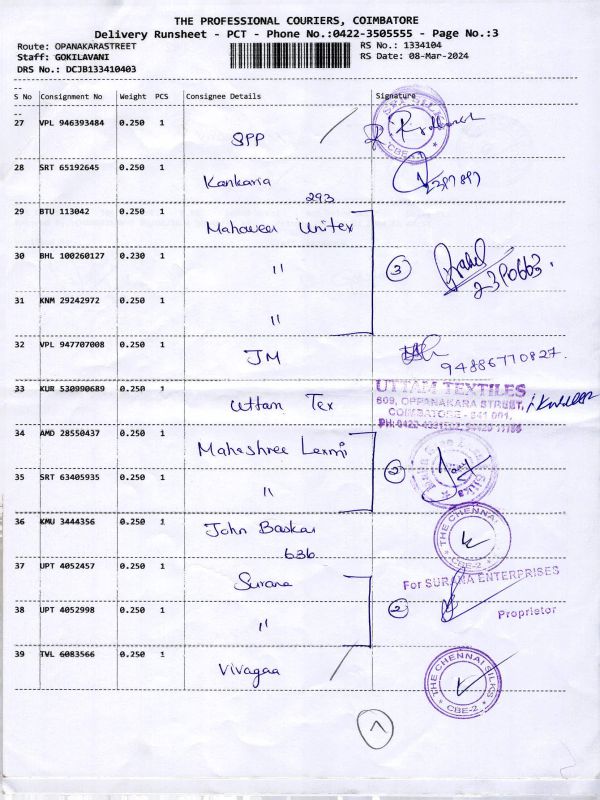 THE PROFESSIONAL COURIERS, COIMBATORE
Delivery Runsheet - PCT - Phone No.:0422-3505555 - Page No.:3
Route: OPANAKARASTREET RS No.: 1334104
Staff: GOKILAVANI RS Date: 08-Mar-2024
DRS No.: DCJB133410403
S No Consignment No Weight PCS Consignee Details Signature
27 VPL 946393484 0.250 1 SPP
CBE-2
28 SRT 65192645 0.250 1 Kankaria
293
29 BTU 113042 0.250 1 Mahaveer Unitex
30 BHL 100260127 0.230 1 " 3
2390663.
31 KNM 29242972 0.250 1 "
32 VPL 947707008 0.250 1 JM
94886770827.
33 KUR 530990689 0.250 1 Uttam Tex
UTTAM TEXTILES
609, OPPANAKARA STREET,
COIMBATORE - 641 001.
34 AMD 28550437 0.250 1 Maheshree Laxmi
35 SRT 63405935 0.250 1 " 2
36 KMU 3444356 0.250 1 John Baskar
636
THE CHENNAI
CBE-2
37 UPT 4052457 0.250 1 Surana
For SURANA ENTERPRISES
38 UPT 4052998 0.250 1 " 2
Proprietor
39 TWL 6083566 0.250 1 Vivagaa
THE CHENNAI SILKS
CBE-2